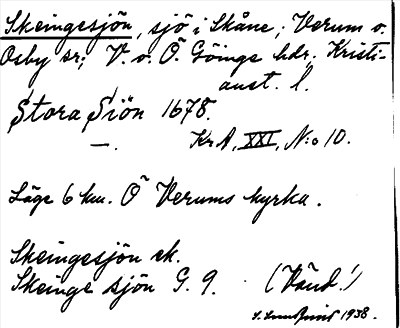 Skeingesjön, sjö i Skåne; Verum o.
Osby sr; V. o. Ö. Göinge hdr. Kristi-
anst. l.
Stora Siön 1678.
—. KrA, XXI, N:o 10.
Läge 6 km. Ö Verums kyrka.
Skeingesjön ek.
Skeinge sjön G. 9. (Vänd!)
1938.